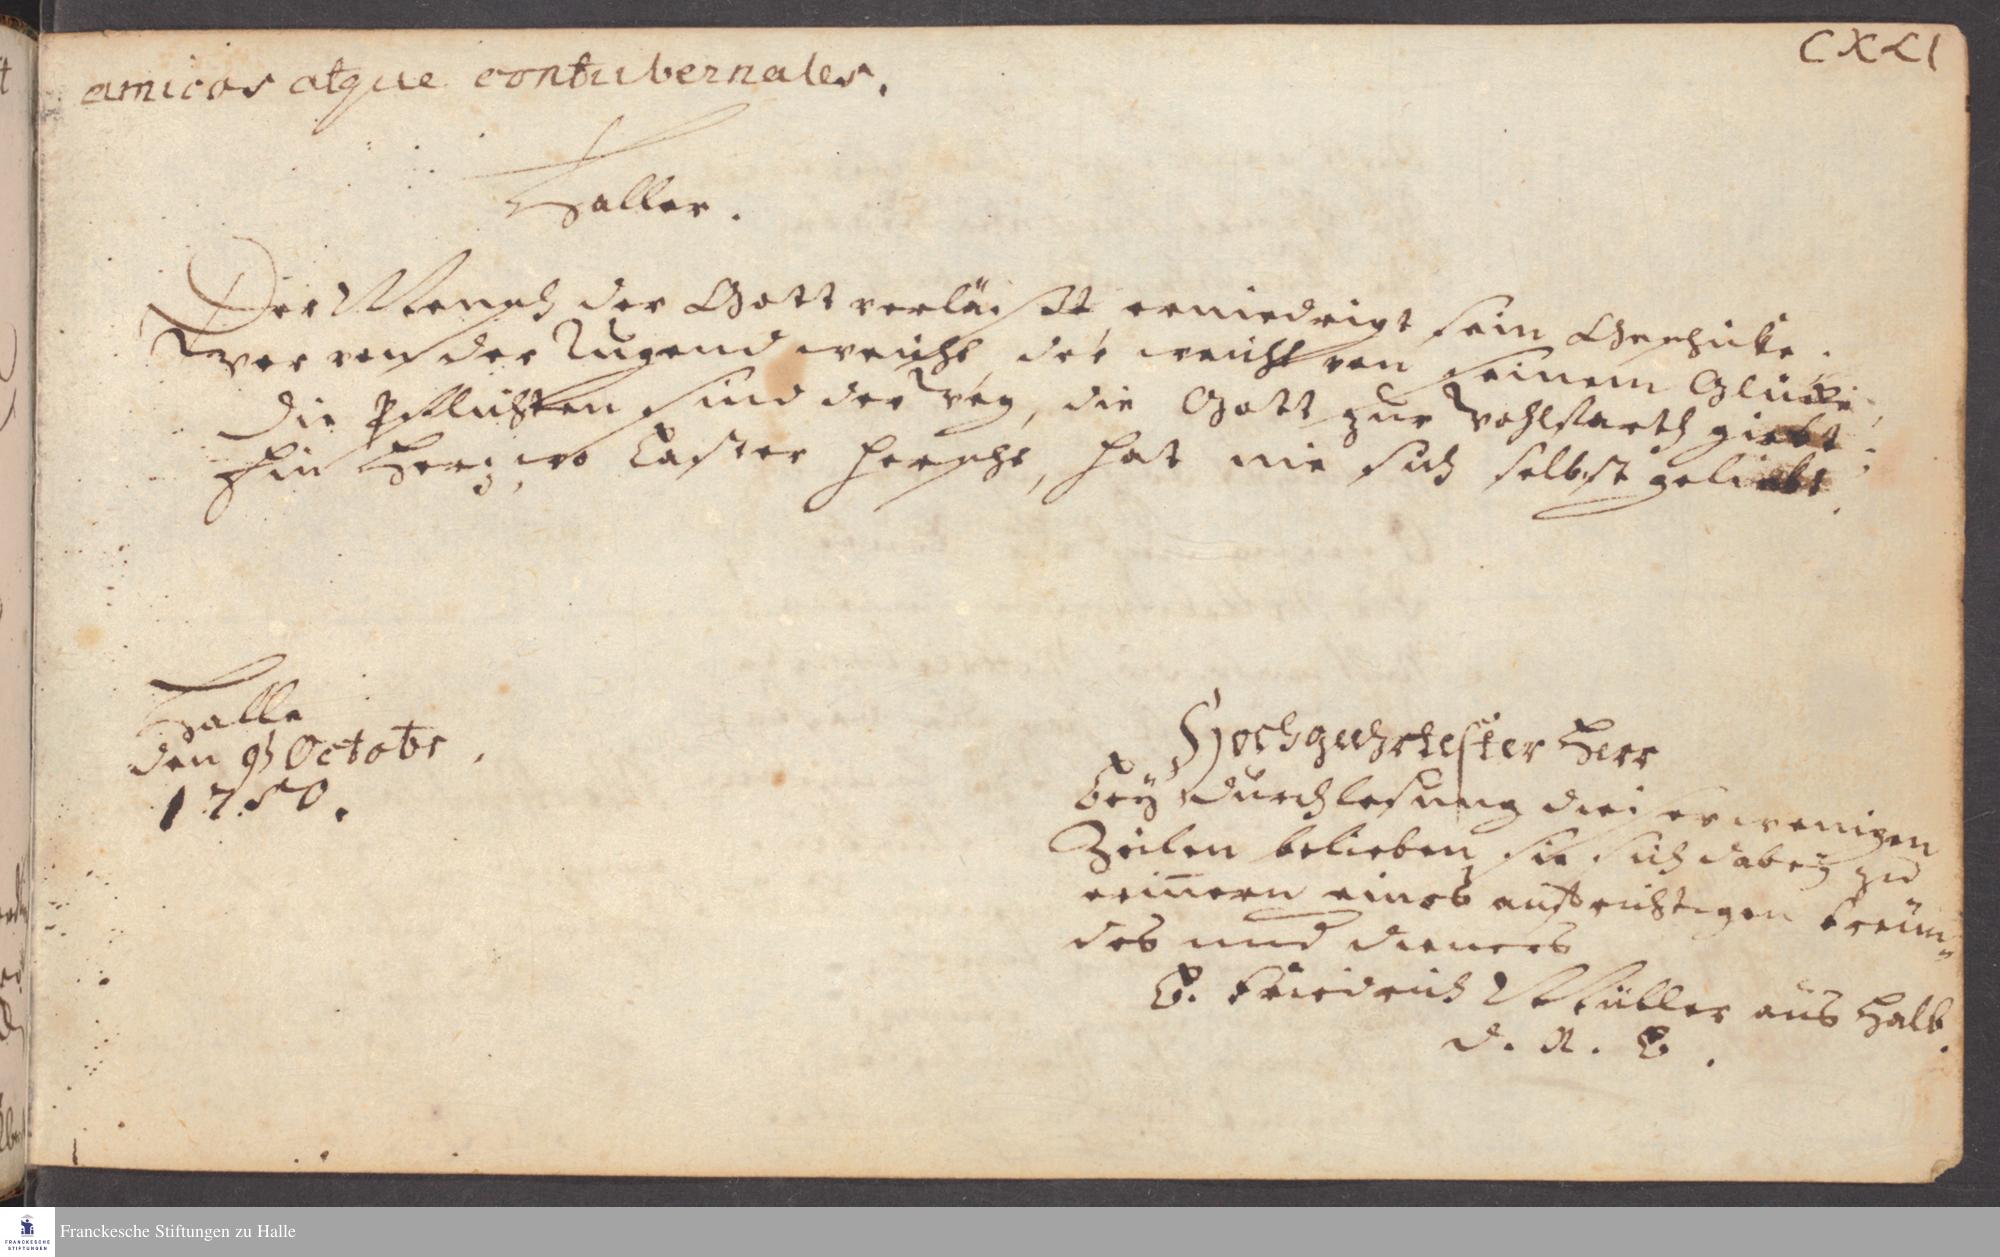 CXLI
amicos atque contubernales.
Haller.
Der Mensch der Gott verläist erniedrigt sein Geschicke.
Wer von der Tugend weicht, der weicht von seinem Glücke,
Die Pflichten sind der Weg, die Gott zur Wohlfarth giebt;
Ein Herz, wo Laster herscht, hat nie sich selbst geliebt.
Halle
den 9 Octobr.
1750.
Hochgeehrtester Herr
bey durchlesung dieser wenigen
Zeilen belieben sie sich dabey zu
erinnern eines aufrichtigen Freün-
des und Dieners
C. Friedrich Müller aus Halb.
d. R. C.
Franckesche Stiftungen zu Halle
FRANCKESCHE
STIFTUNGEN